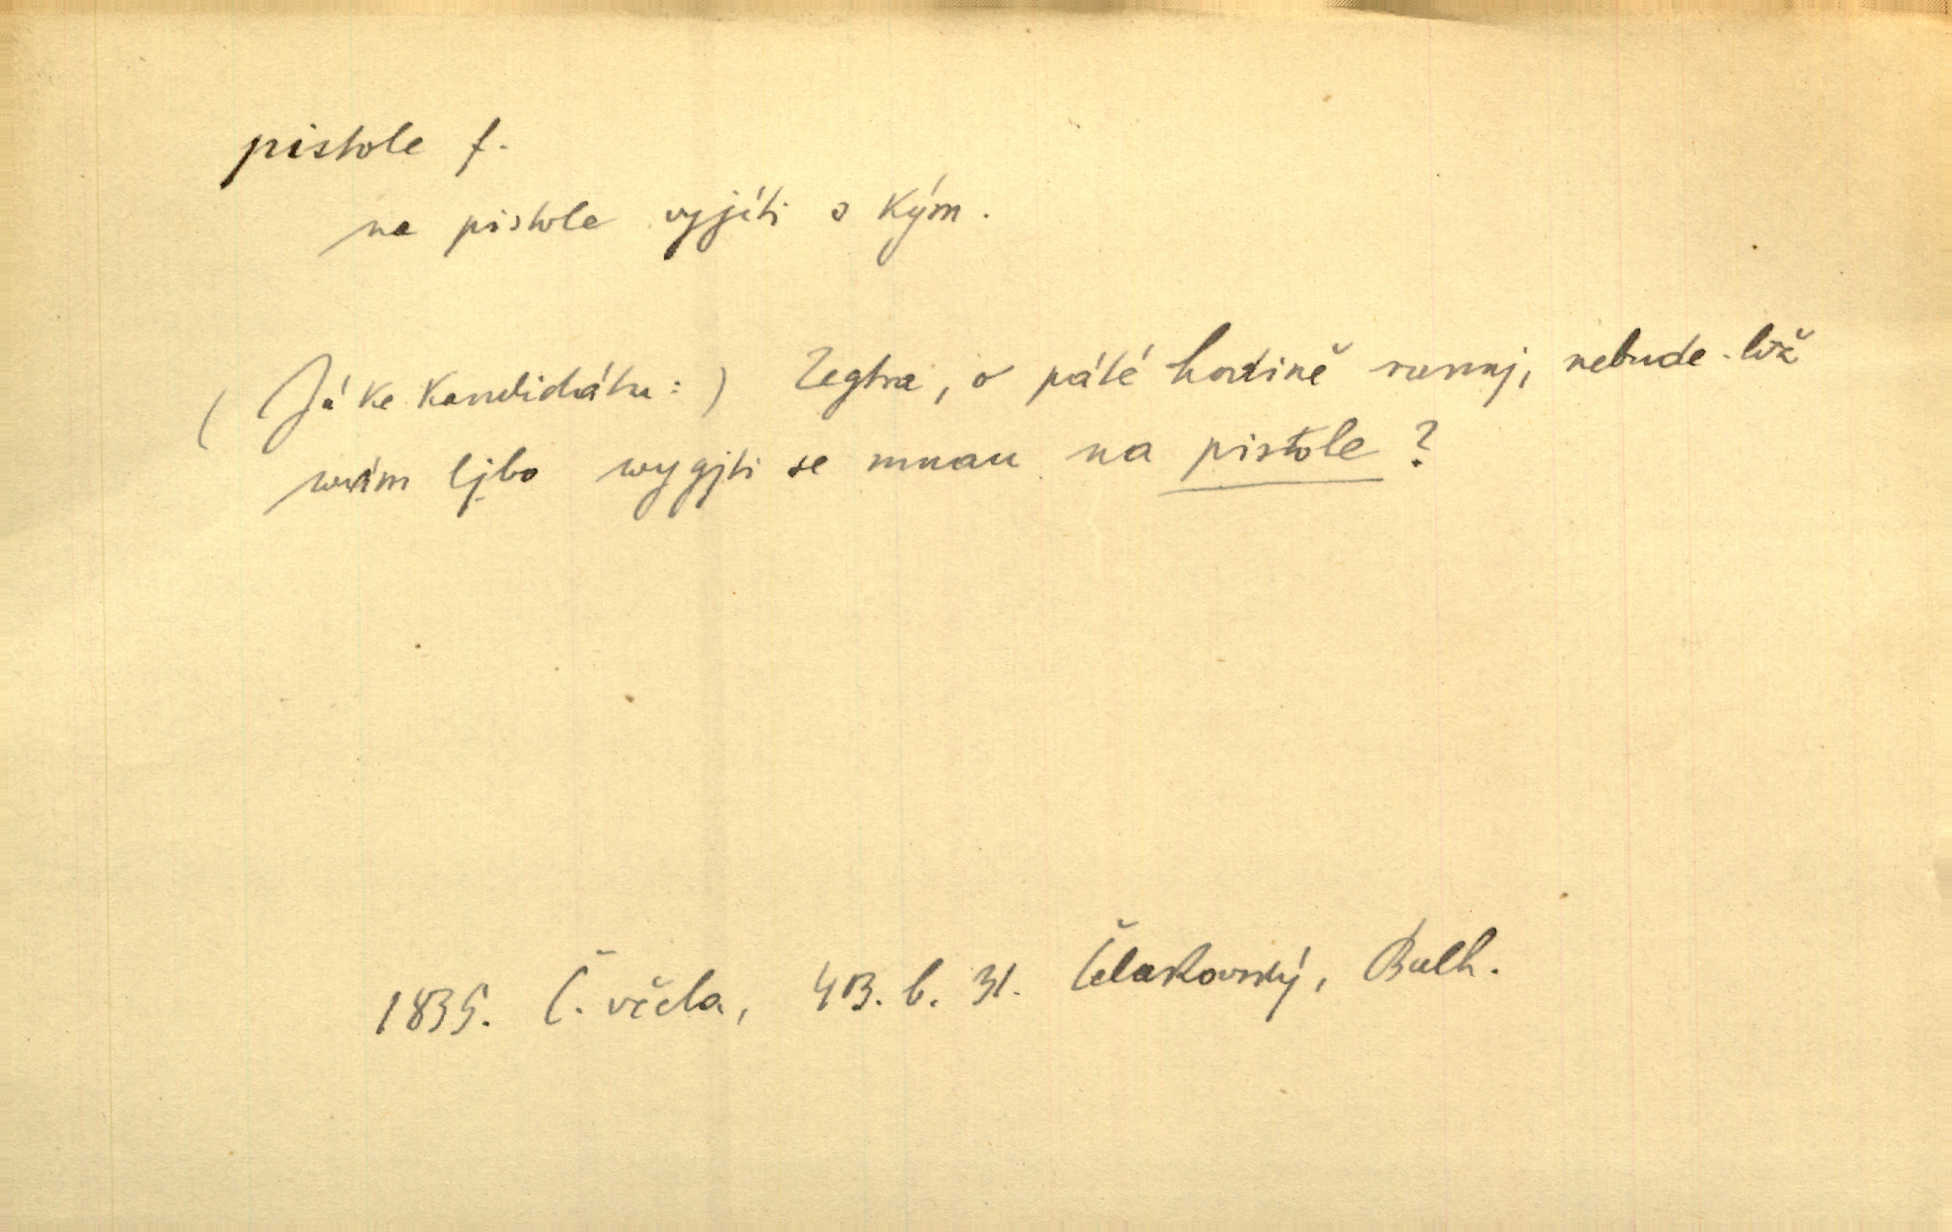 pistole f.
na pistole vyjíti s kým.
(Já ke kandidátu:) Zegtra, o páté hodině rannj, nebude-liž
wám ljbo wygjti se mnau na pistole?
1835. Č. včela, 413. b. 31. Čelakovský, Bulh.